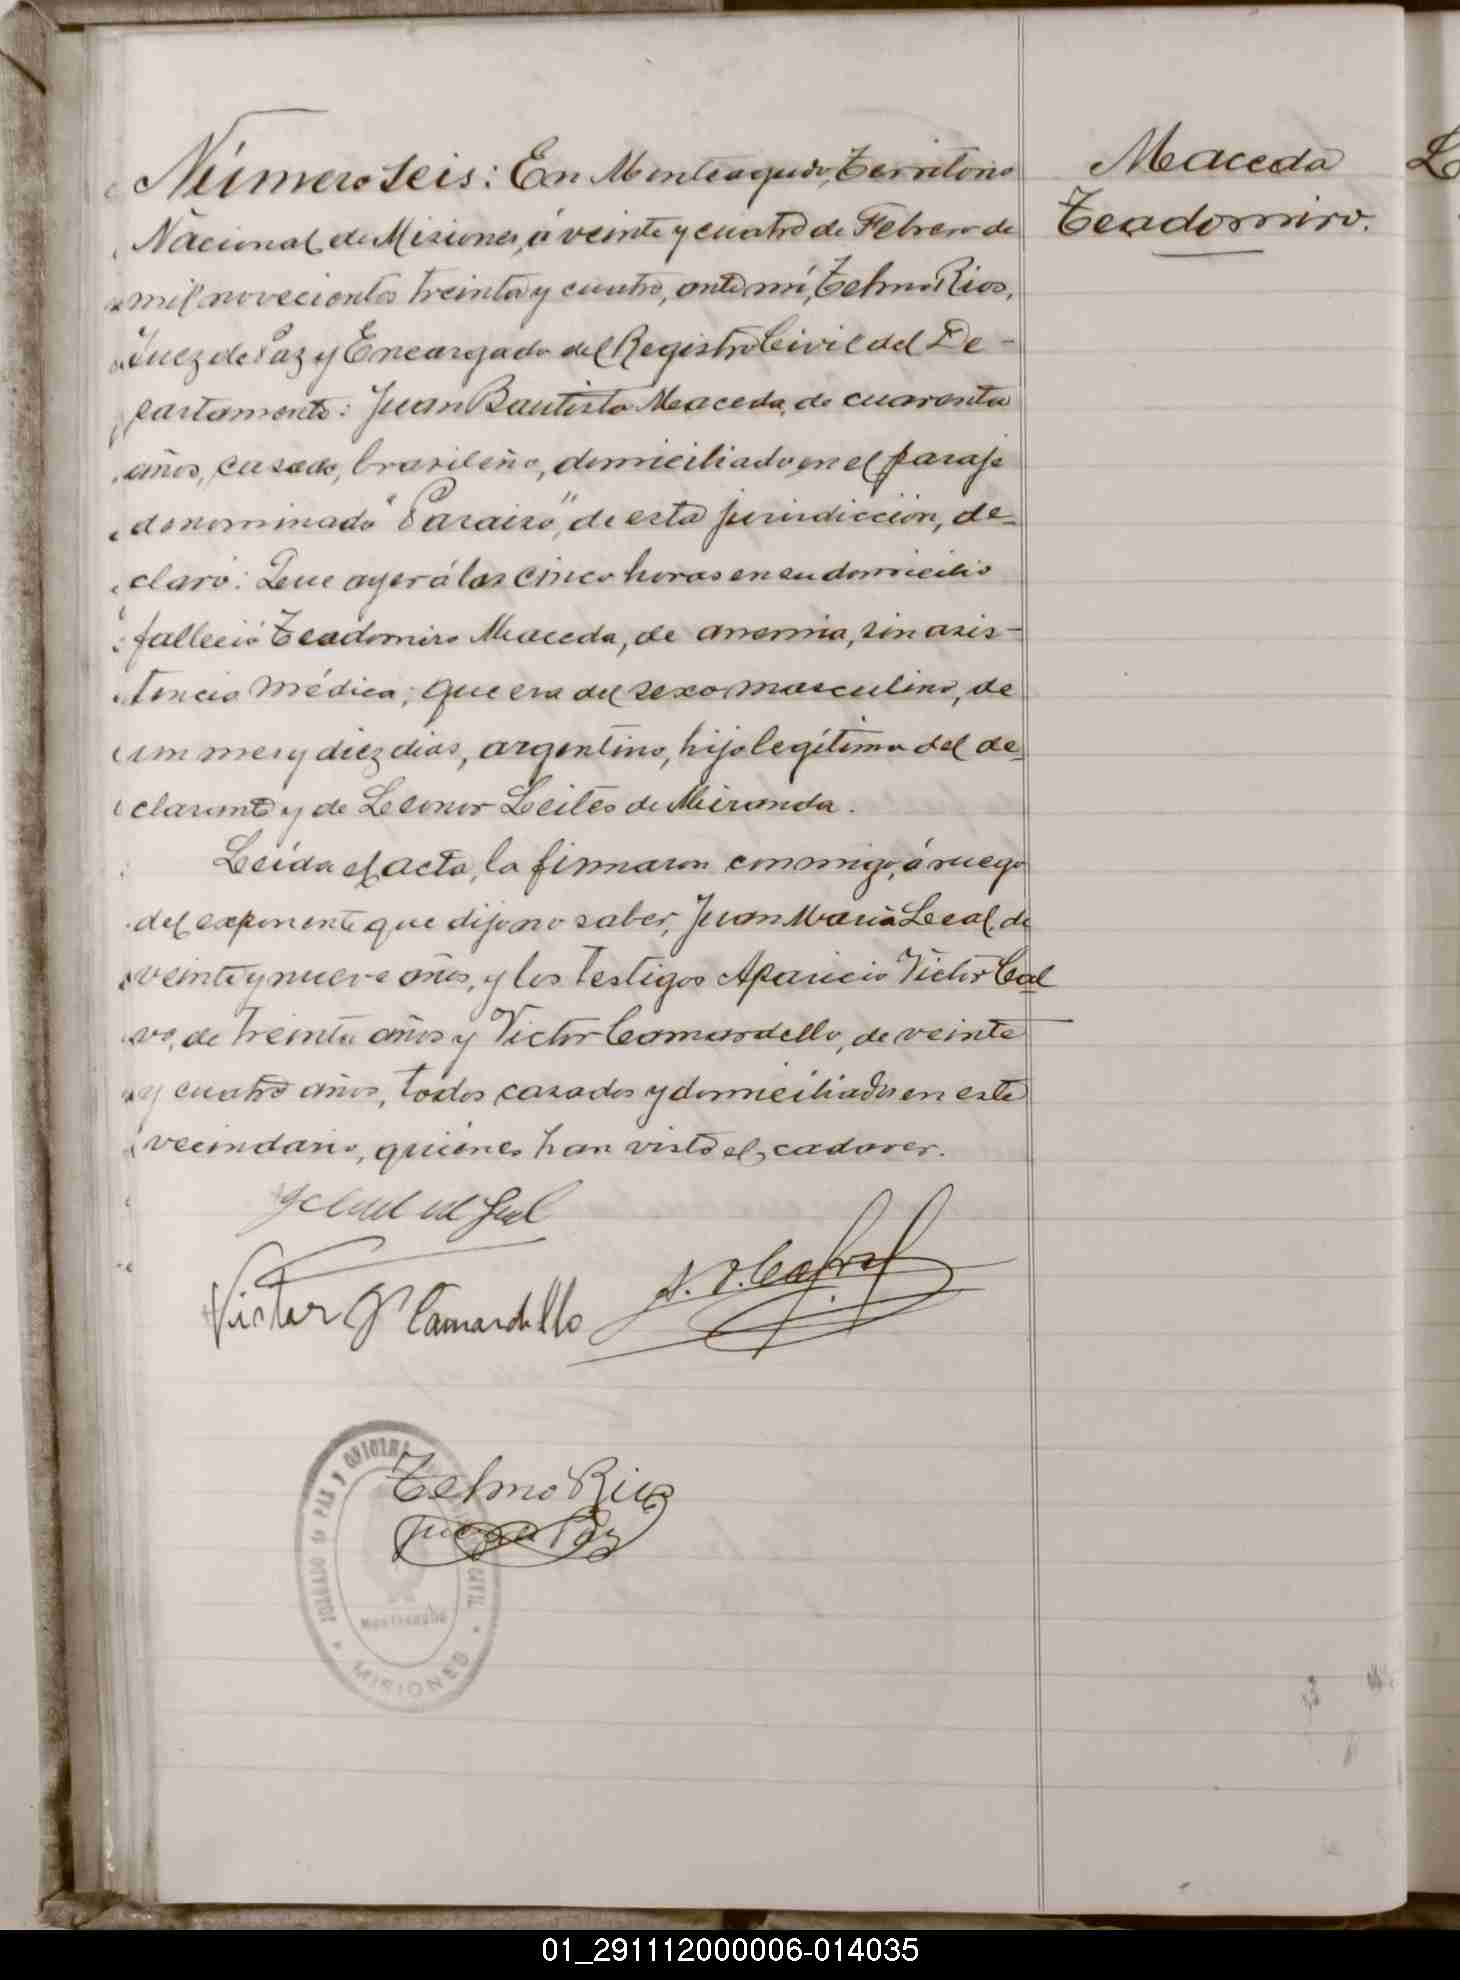 Maceda
Teadomiro.
Número seis: En Monteagudo, Territorio
Nacional de Misiones, á veinte y cuatro de Febrero de
mil novecientos treinta y cuatro, ante mí, Telmo Rios,
Juez de Paz y Encargado del Registro Civil del De-
partamento: Juan Bautista Maceda, de cuarenta
años, casado, brasileño, domiciliado en el paraje
denominado "Paraiso", de esta jurisdicción, de-
claró: Que ayer á las cinco horas en su domicilio
falleció Teadomiro Maceda, de anemia, sin asis-
tencia médica; que era del sexo masculino, de
un mes y diez dias, argentino, hijo legítimo del de-
clarante y de Leonor Leites de Miranda.
Leída el acta, la firmaron conmigo, á ruego
del exponente que dijo no saber, Juan María Leal, de
veinte y nueve años, y los testigos Aparicio Victor Cal
vo, de treinta años y Victor Camardello, de veinte
y cuatro años, todos casados y domiciliados en este
vecindario, quiénes han visto el cadaver.
Victor J Camardello
A. V. Cabral
Telmo Rios
Juez de Paz
JUZGADO de PAZ Y OFICINA
CIVIL
Monteagudo
MISIONES
01_291112000006-014035